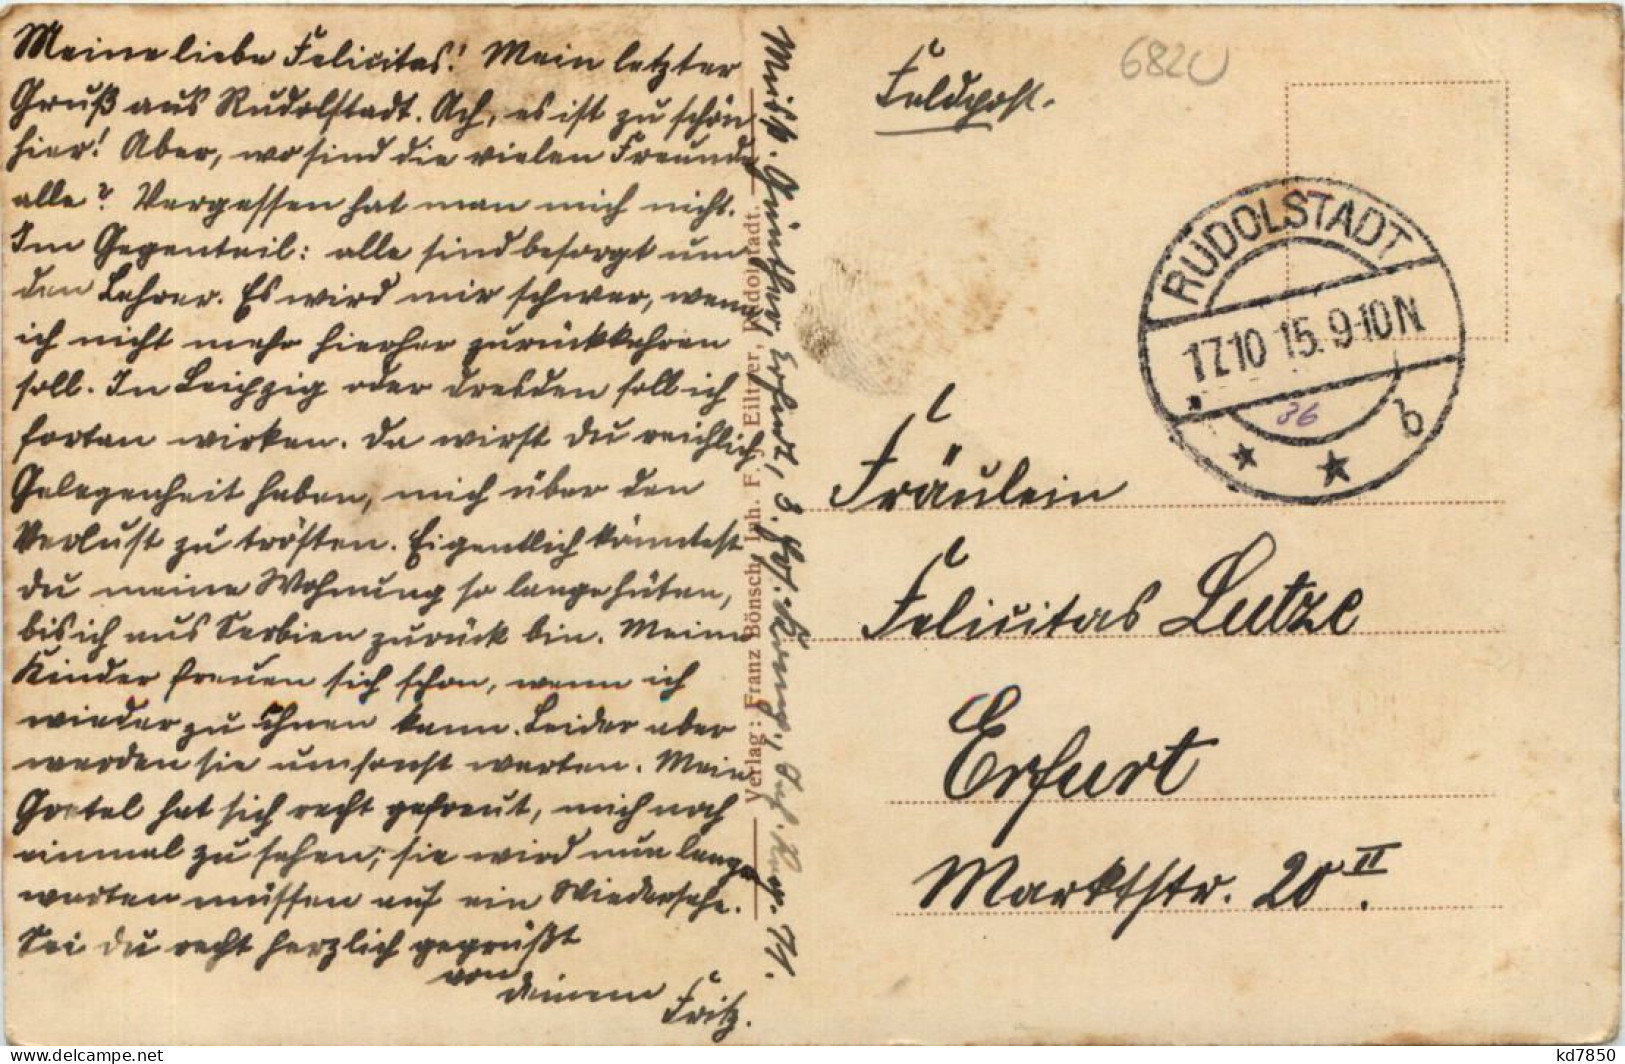 Meine liebe Felicitas! Mein letzter
Gruß aus Rudolstadt. Ach, es ist zu schön
hier! Aber, wo sind die vielen Freunde
alle? Vergessen hat man mich nicht.
Im Gegenteil: alle sind besorgt um
den Lehrer. Es wird mir schwer, wenn
ich nicht mehr hierher zurückkehren
soll. In Leipzig oder Dresden soll ich
fortan wirken. Da wirst du reichlich
Gelegenheit haben, mich über den
Verlust zu trösten. Eigentlich könntest
du meine Wohnung so lange hüten,
bis ich aus Serbien zurück bin. Meine
Kinder freuen sich schon, wenn ich
wieder zu ihnen kann. Leider aber
werden sie umsonst warten. Mein
Gretel hat sich recht gefreut, mich noch
einmal zu sehen; sie wird nun lange
warten müssen auf ein Wiedersehn.
Sei du recht herzlich gegrüßt
von
deinem
Fritz.
Günther, Erfurt, 3.
Verlag: Franz Bönsch, Inh. F. Eiltzer, Rudolstadt.
Feldpost.
6820
RUDOLSTADT
17.10 15. 9-10N
36
* * b
Fräulein
Felicitas Lutze
Erfurt
Marktstr. 20 II.
https://www.delcampe.net
kd7850